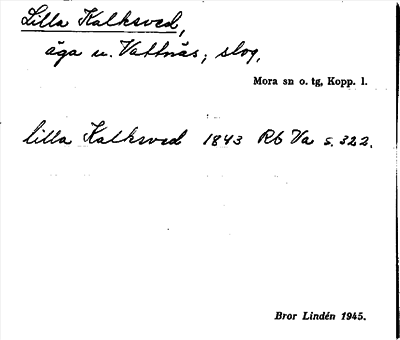 Lilla Kalksved,
äga u. Vattnäs; slog.
Mora sn o. tg, Kopp. l.
lilla Kalksved 1843 Rb Va s. 322.
Bror Lindén 1945.